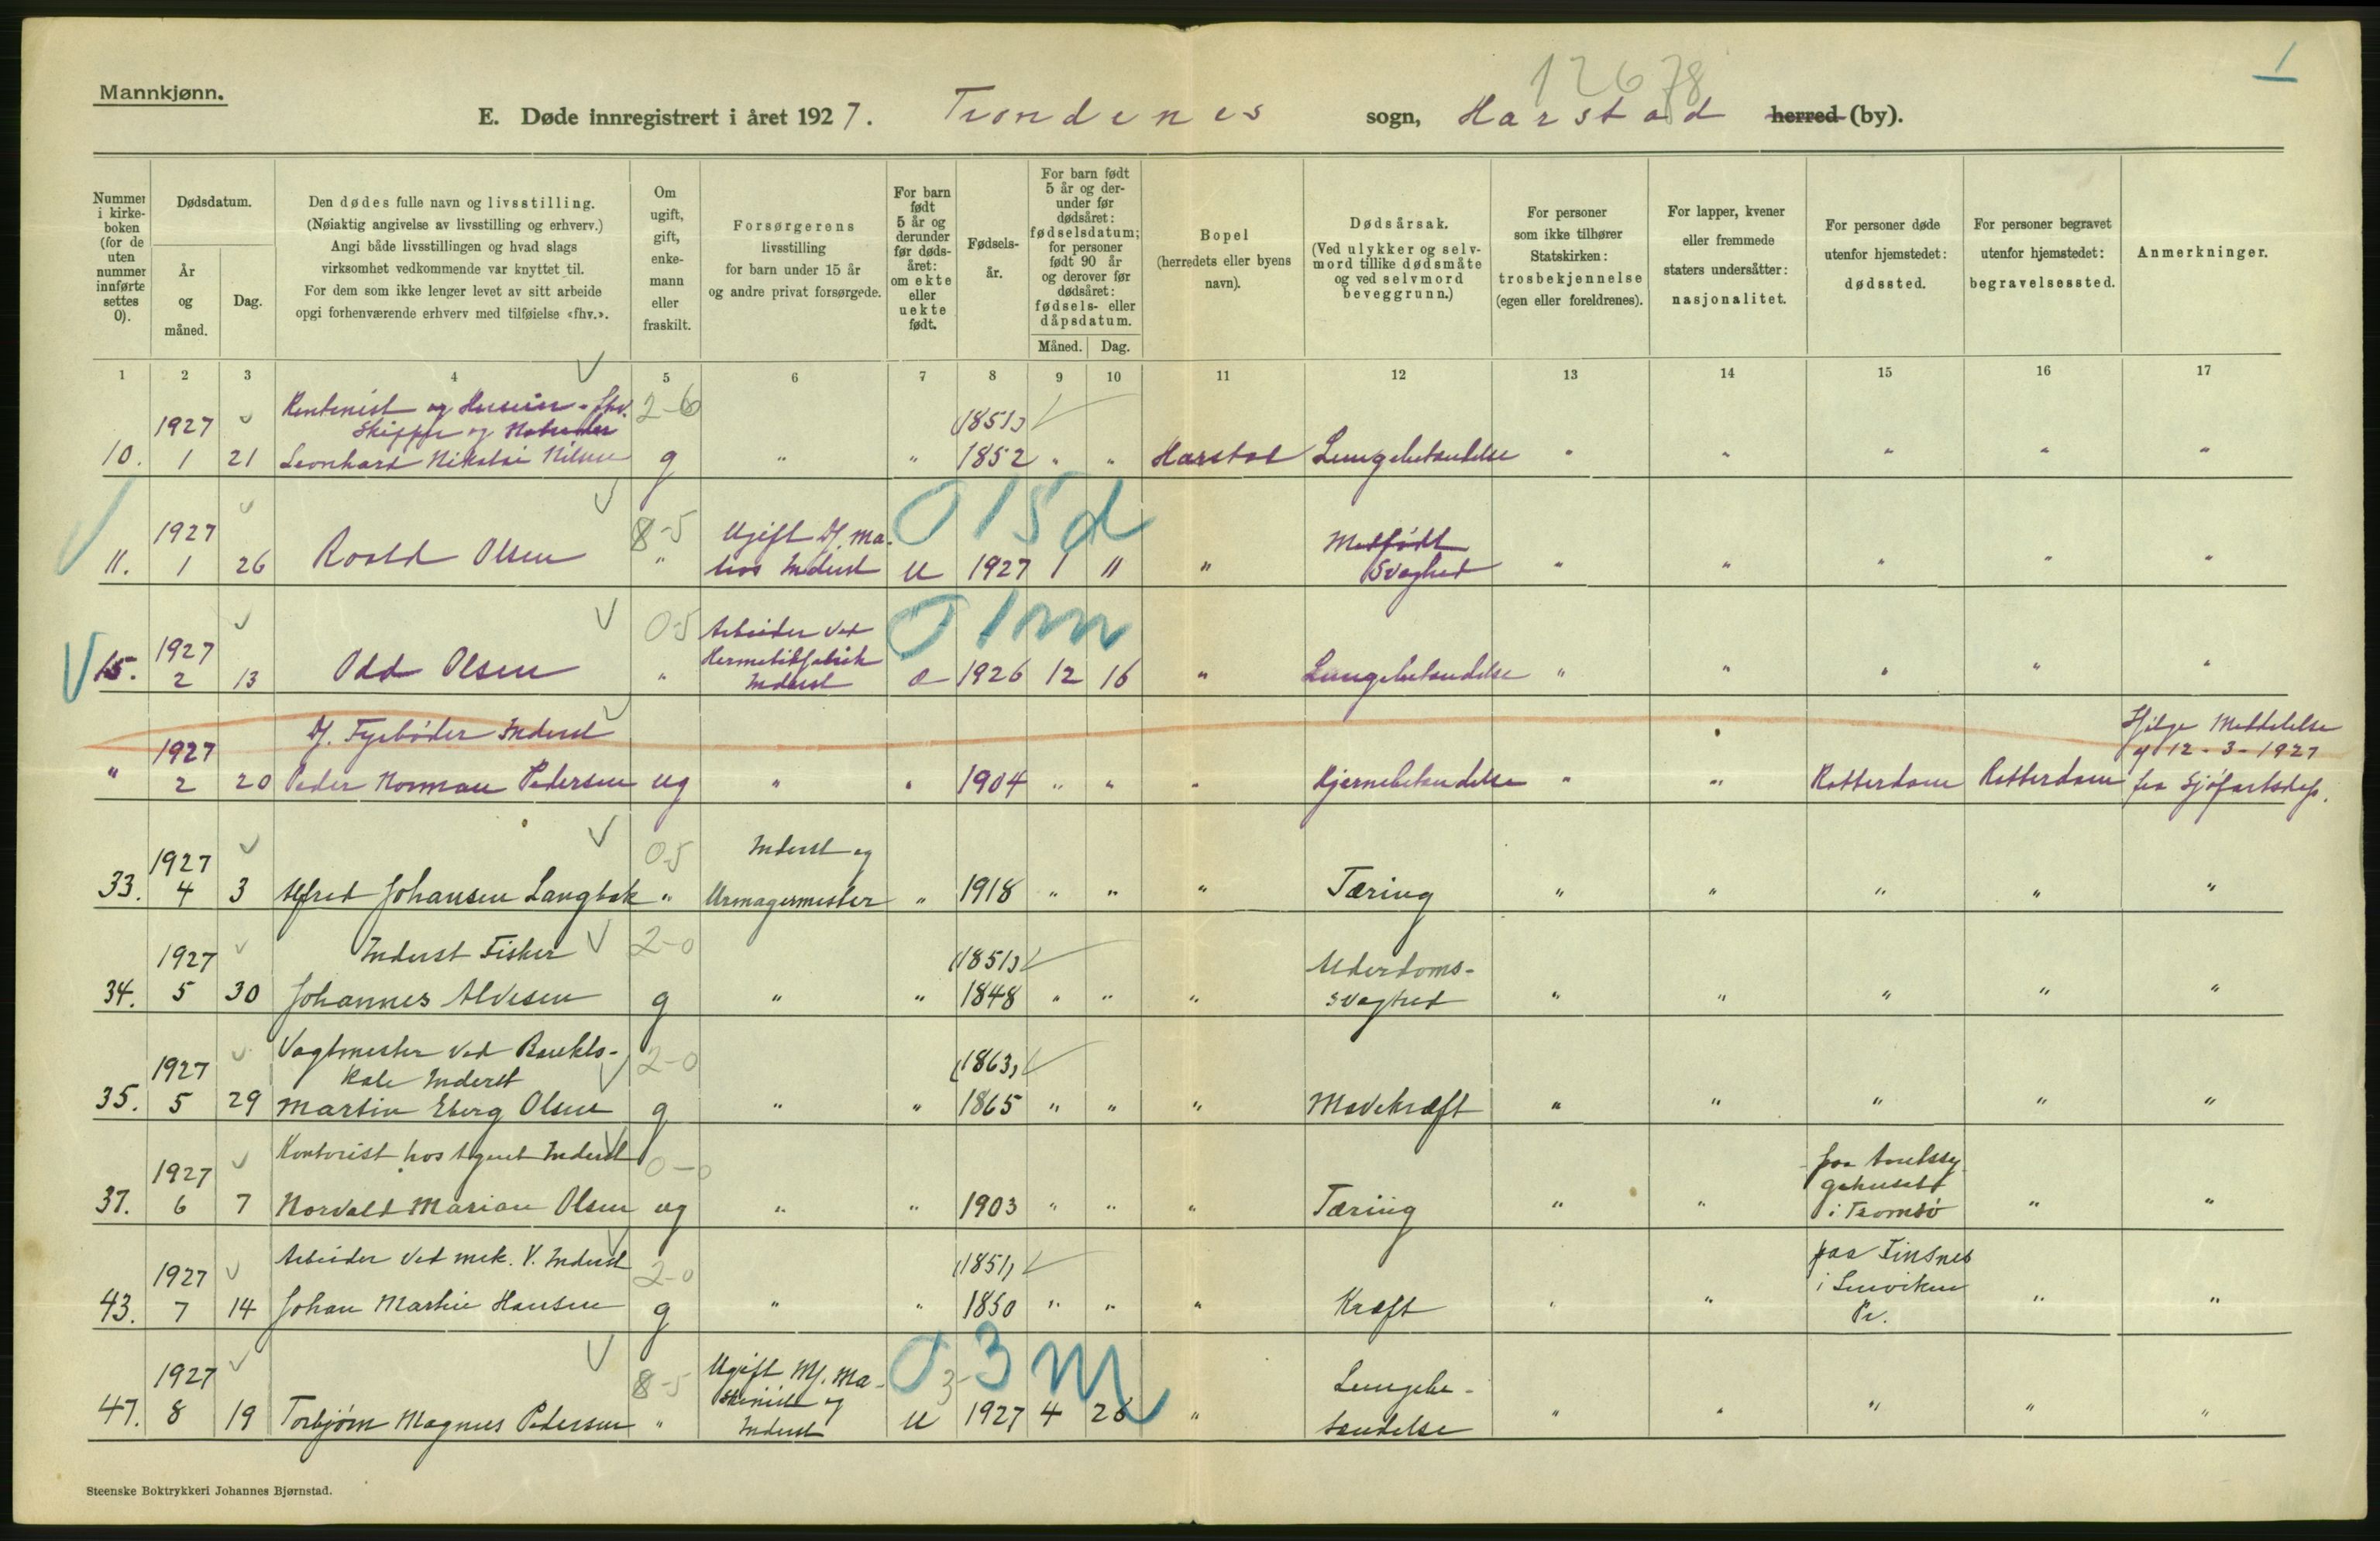 1
12678
Mannkjønn.
E. Døde innregistrert i året 1927. Trondenes sogn, Harstad herred (by).
Nummer i kirke-boken (for de uten nummer innførte settes 0).
Dødsdatum.
År og måned.
Dag.
Den dødes fulle navn og livsstilling.
(Nøiaktig angivelse av livsstilling og erhverv.)
Angi både livsstillingen og hvad slags
virksomhet vedkommende var knyttet til.
For dem som ikke lenger levet av sitt arbeide
opgi forhenværende erhverv med tilføielse «fhv.».
Om ugift, gift, enke-mann eller fraskilt.
Forsørgerens
livsstilling
for barn under 15 år
og andre privat forsørgede.
For barn født 5 år og derunder før døds-året: om ekte eller uekte født.
Fødsels-år.
For barn født 5 år og der-under før dødsåret: fødselsdatum; for personer født 90 år og derover før dødsåret: fødsels- eller dåpsdatum.
Måned. Dag.
Bopel
(herredets eller byens navn).
Dødsårsak.
(Ved ulykker og selv-mord tillike dødsmåte og ved selvmord beveggrunn.)
For personer
som ikke tilhører
Statskirken:
trosbekjennelse
(egen eller foreldrenes).
For lapper, kvener
eller fremmede
staters undersåtter:
nasjonalitet.
For personer døde
utenfor hjemstedet:
dødssted.
For personer begravet
utenfor hjemstedet:
begravelsessted.
Anmerkninger.
1 2 3 4 5 6 7 8 9 10 11 12 13 14 15 16 17
Rentenist og Huseier - fhv. 2-6
1927 Skipper og (1851)
10. 1 21 Leonhard Nikolai Nilsen g " " 1852 " " Harstad Lungebetændelse " " " " "
8-5 Ugift Df. ma. 0 15 d
1927 Medfødt
11. 1 26 Roald Olsen " hos Inderst U 1927 1 11 " Svaghed " " " " "
0-5 Arbeider ved 0 1 m
1927 Hermetikfabrik
15. 2 13 Odd Olsen " Inderst 1926 12 16 " Lungebetændelse " " " " "
Df. Fyrbøder Inderst Ifølge Meddelelse
1927 af 12-3-1927
" 2 20 Peder Norman Pedersen ug " " 1904 " " " Hjernebetændelse " " Rotterdam Rotterdam fra Sjøfartsdep.
0-5 Inderst og
1927
33. 4 3 Alfred Johansen Langbak " Urmagermester " 1918 " " " Tæring " " " " "
Inderst Fisker 2-0
1927 (1851) Alderdoms-
34. 5 30 Johannes Alvesen g " " 1848 " " " svaghed " " " " "
Vagtmester ved 2-0 (1863)
1927 Inderst
35. 5 29 Martin Eberg Olsen g " " 1865 " " " Mavekræft " " " " "
Kontorist hos Agent Inderst 0-0 paa Amtssy
1927 gehuset
37. 6 7 Norvald Marian Olsen ug " " 1903 " " " Tæring " " i Tromsø " "
Arbeider ved mek. V. Inderst 2-0 (1851) paa Finsnes
1927 i Lenviken
43. 7 14 Johan Martin Hansen g " " 1850 " " " Kræft " " Pr. " "
8-5 Ugift Mf. Ma- 0 3 m
1927 skinist og Lungebe-
47. 8 19 Torbjørn Magnus Pedersen " Inderst U 1927 4 26 " tændelse " " " " "
Steenske Boktrykkeri Johannes Bjørnstad.